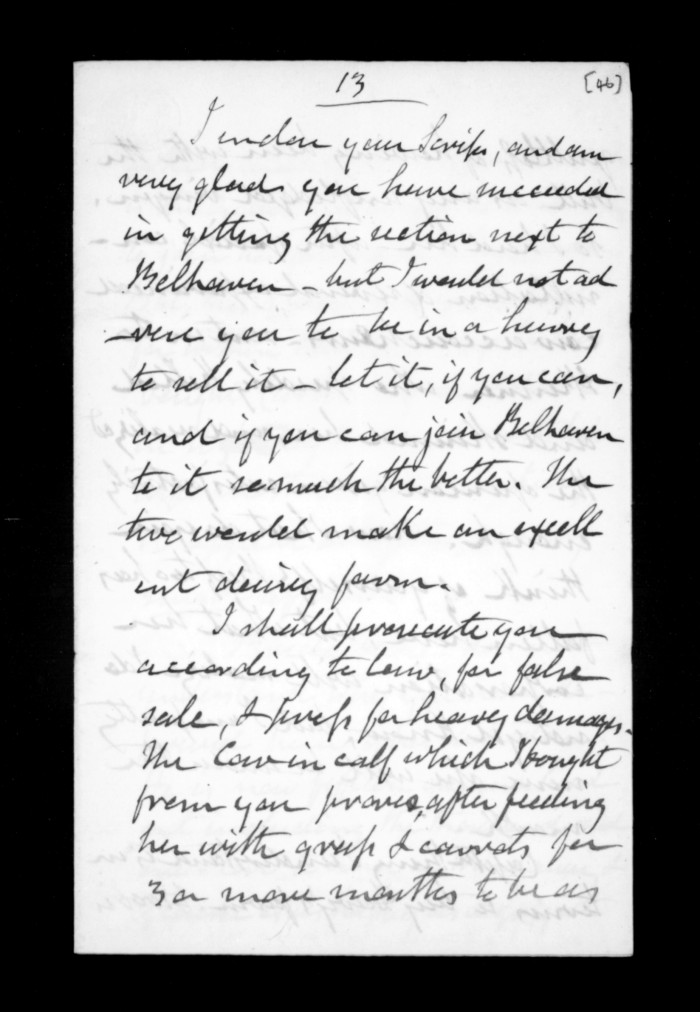 13
[46]
I endon your Scrips, and am
very glad you have succeeded
in getting the section next to
Belhaven – but I would not ad
–vise you to be in a hurry
to sell it – let it, if you can,
and if you can join Belhaven
to it so much the better. The
two would make an excell
ent dairy farm.
I shall prosecute you
according to law, for false
sale, & press for heavy damages.
The Cow in calf which I bought
from you proves, after feeding
her with grass & carrots for
3 or more months to be as